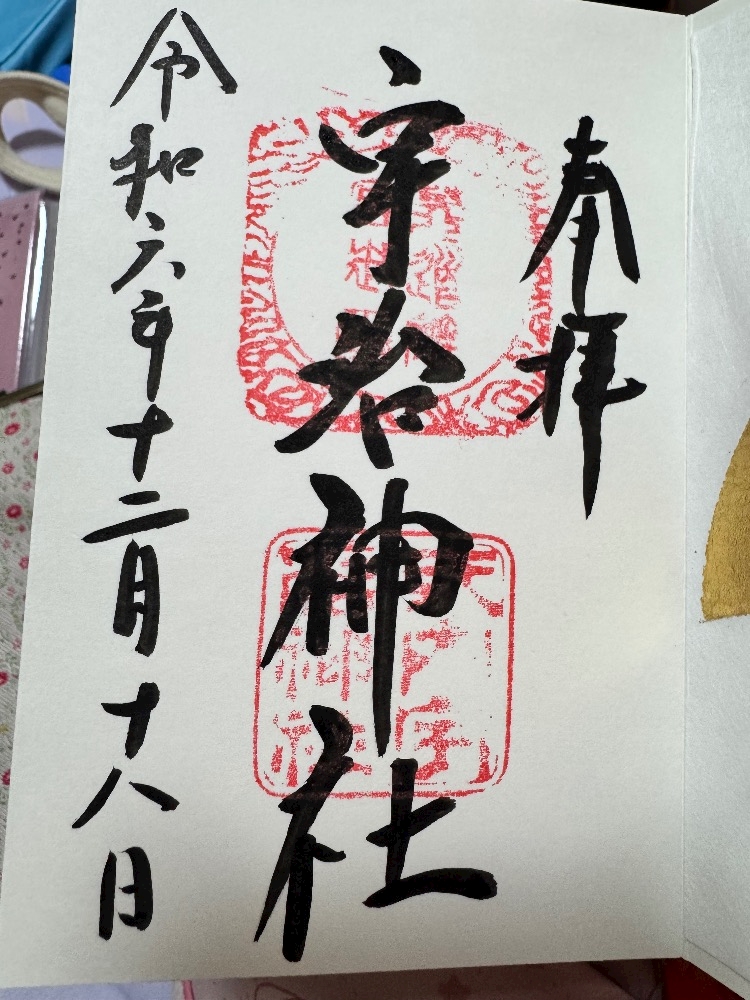 奉拝
宇治神社
令和六年十二月十八日